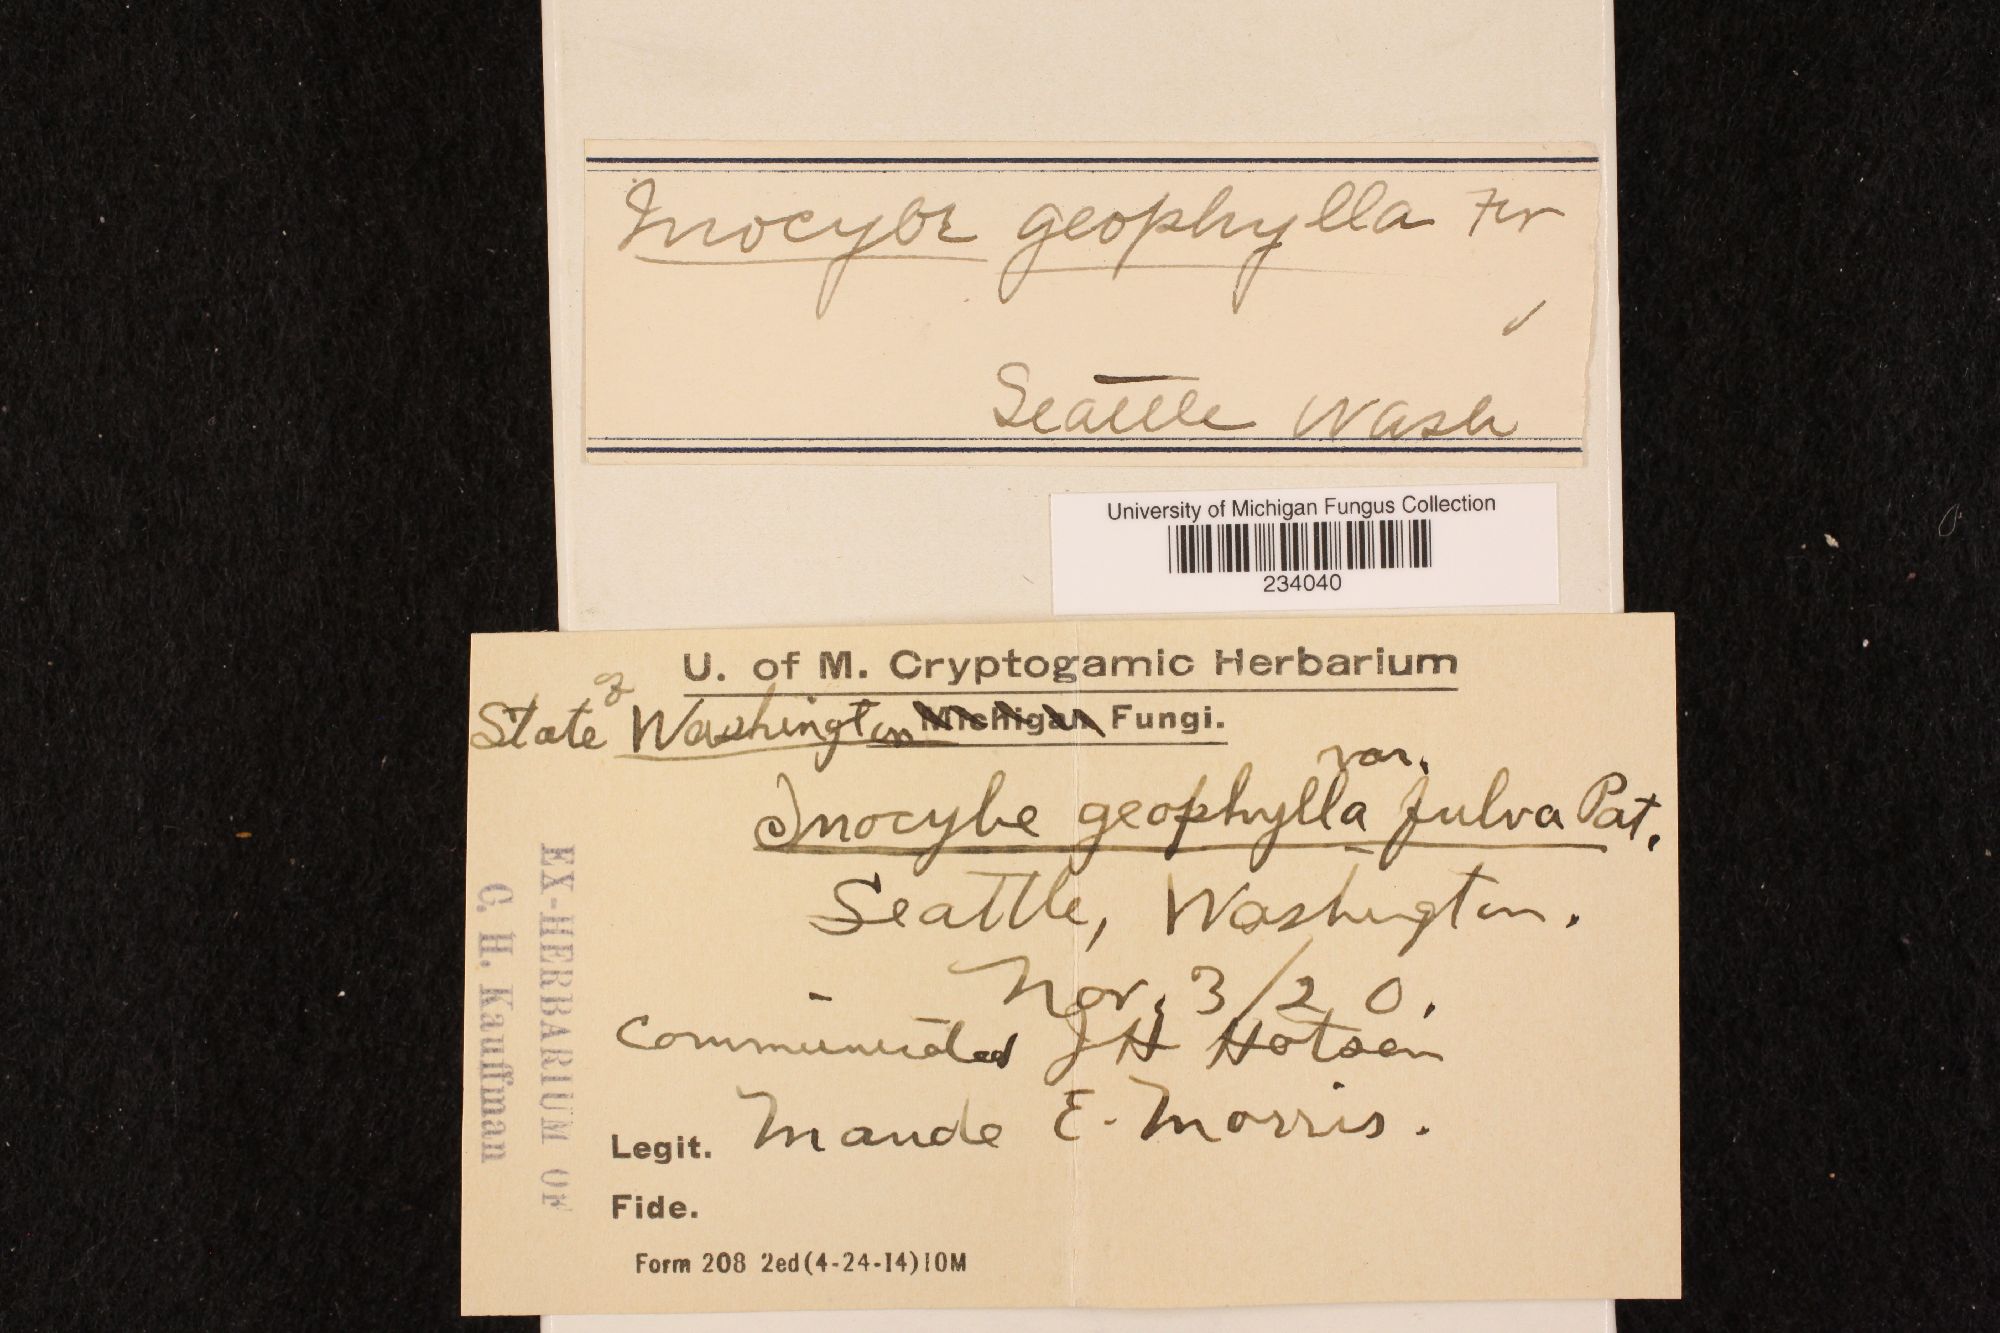 Inocybe geophylla Fr
Seattle Wash
University of Michigan Fungus Collection
234040
U. of M. Cryptogamic Herbarium
State of Washington Michigan Fungi.
var.
Inocybe geophylla fulva Pat.
Seattle, Washington.
Nov. 3/20.
Communicated J H Hotson
Legit. Maude E. Morris.
Fide.
Form 208 2ed (4-24-14) 10M
EX-HERBARIUM OF
C. H. Kauffman